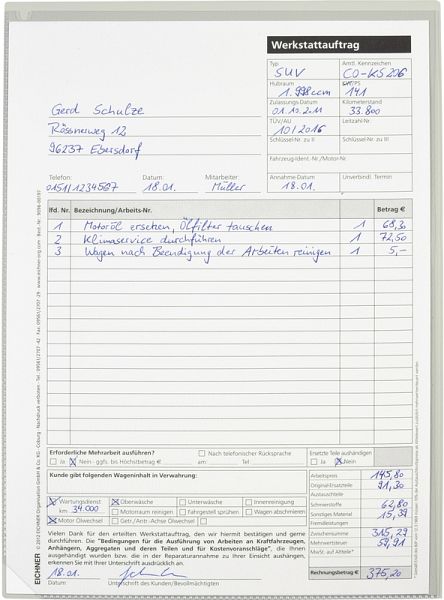 Werkstattauftrag
Typ
Amtl. Kennzeichen
SUV
CO-KS 206
Hubraum
KW/PS
1.998ccm
141
Zulassungs-Datum
Kilometerstand
01.10.2011
33.800
TÜV/AU
Leitzahl-Nr.
10/2016
Schlüssel-Nr. zu II
Schlüssel-Nr. zu III
Fahrzeug-Ident.-Nr./Motor-Nr.
Gerd Schulze
Rössnerweg 12
96237 Ebersdorf
Telefon:
Datum:
Mitarbeiter:
Annahme-Datum
Unverbindl. Termin
0151/1234567
18.01.
Müller
18.01.
lfd. Nr.
Bezeichnung/Arbeits-Nr.
Betrag €
1 Motoröl ersetzen, Ölfilter tauschen 1 68,30
2 Klimaservice durchführen 1 72,50
3 Wagen nach Beendigung der Arbeiten reinigen 1 5,-
Erforderliche Mehrarbeit ausführen?
Nach telefonischer Rücksprache
Ersetzte Teile aushändigen
Ja
Nein - ggfs. bis Höchstbetrag €
am:
Tel.:
Ja
Nein
Kunde gibt folgenden Wageninhalt in Verwahrung:
Arbeitspreis 145,80
Original-Ersatzteile 91,30
Austauschteile
Schmierstoffe 62,80
Sonstiges Material 15,39
Fremdleistungen
Zwischensumme 315,29
Mehrwertsteuer 59,91
MwSt. auf Altteile*
Rechnungsbetrag € 375,20
Wartungsdienst
Oberwäsche
Unterwäsche
Innenreinigung
km 34.000
Motorraum reinigen
Fahrgestell sprühen
Wagen abschmieren
Motor Ölwechsel
Getr./Antr.-Achse Ölwechsel
Vielen Dank für den erteilten Werkstattauftrag, den wir hiermit bestätigen und gerne
durchführen. Die "Bedingungen für die Ausführung von Arbeiten an Kraftfahrzeugen,
Anhängern, Aggregaten und deren Teilen und für Kostenvoranschläge", die Ihnen
ausgehändigt wurden bzw. die in der Reparaturannahme zu Ihrer Einsicht aushängen,
erkennen Sie mit Ihrer Unterschrift ausdrücklich an.
18.01.
Datum
Unterschrift des Kunden/Bevollmächtigten
EICHNER